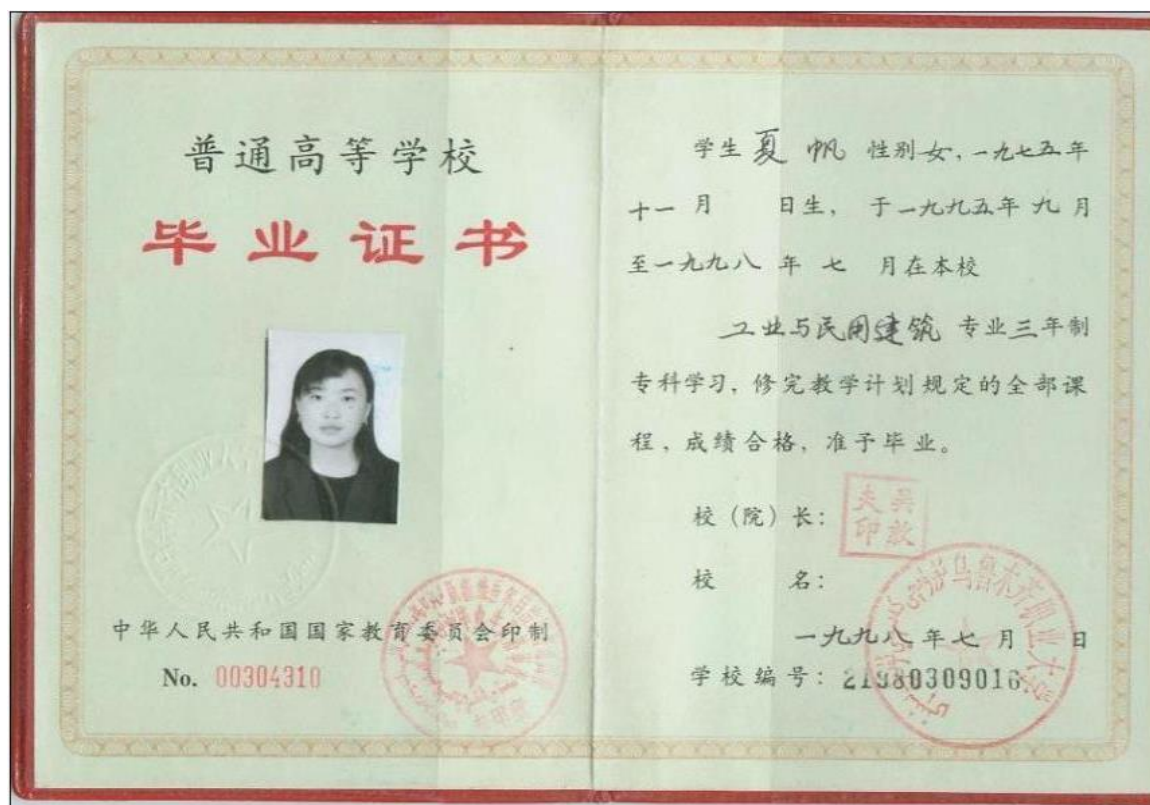 普通高等学校
毕业证书
中华人民共和国国家教育委员会印制
No. 00304310
学生 夏帆 性别 女, 一九七五年
十一月 日生, 于一九九五年九月
至一九九八年七月在本校
工业与民用建筑 专业三年制
专科学习, 修完教学计划规定的全部课
程, 成绩合格, 准予毕业。
校(院)长:
校 名:
乌鲁木齐职业大学
一九九八年七月 日
学校编号: 21980309016